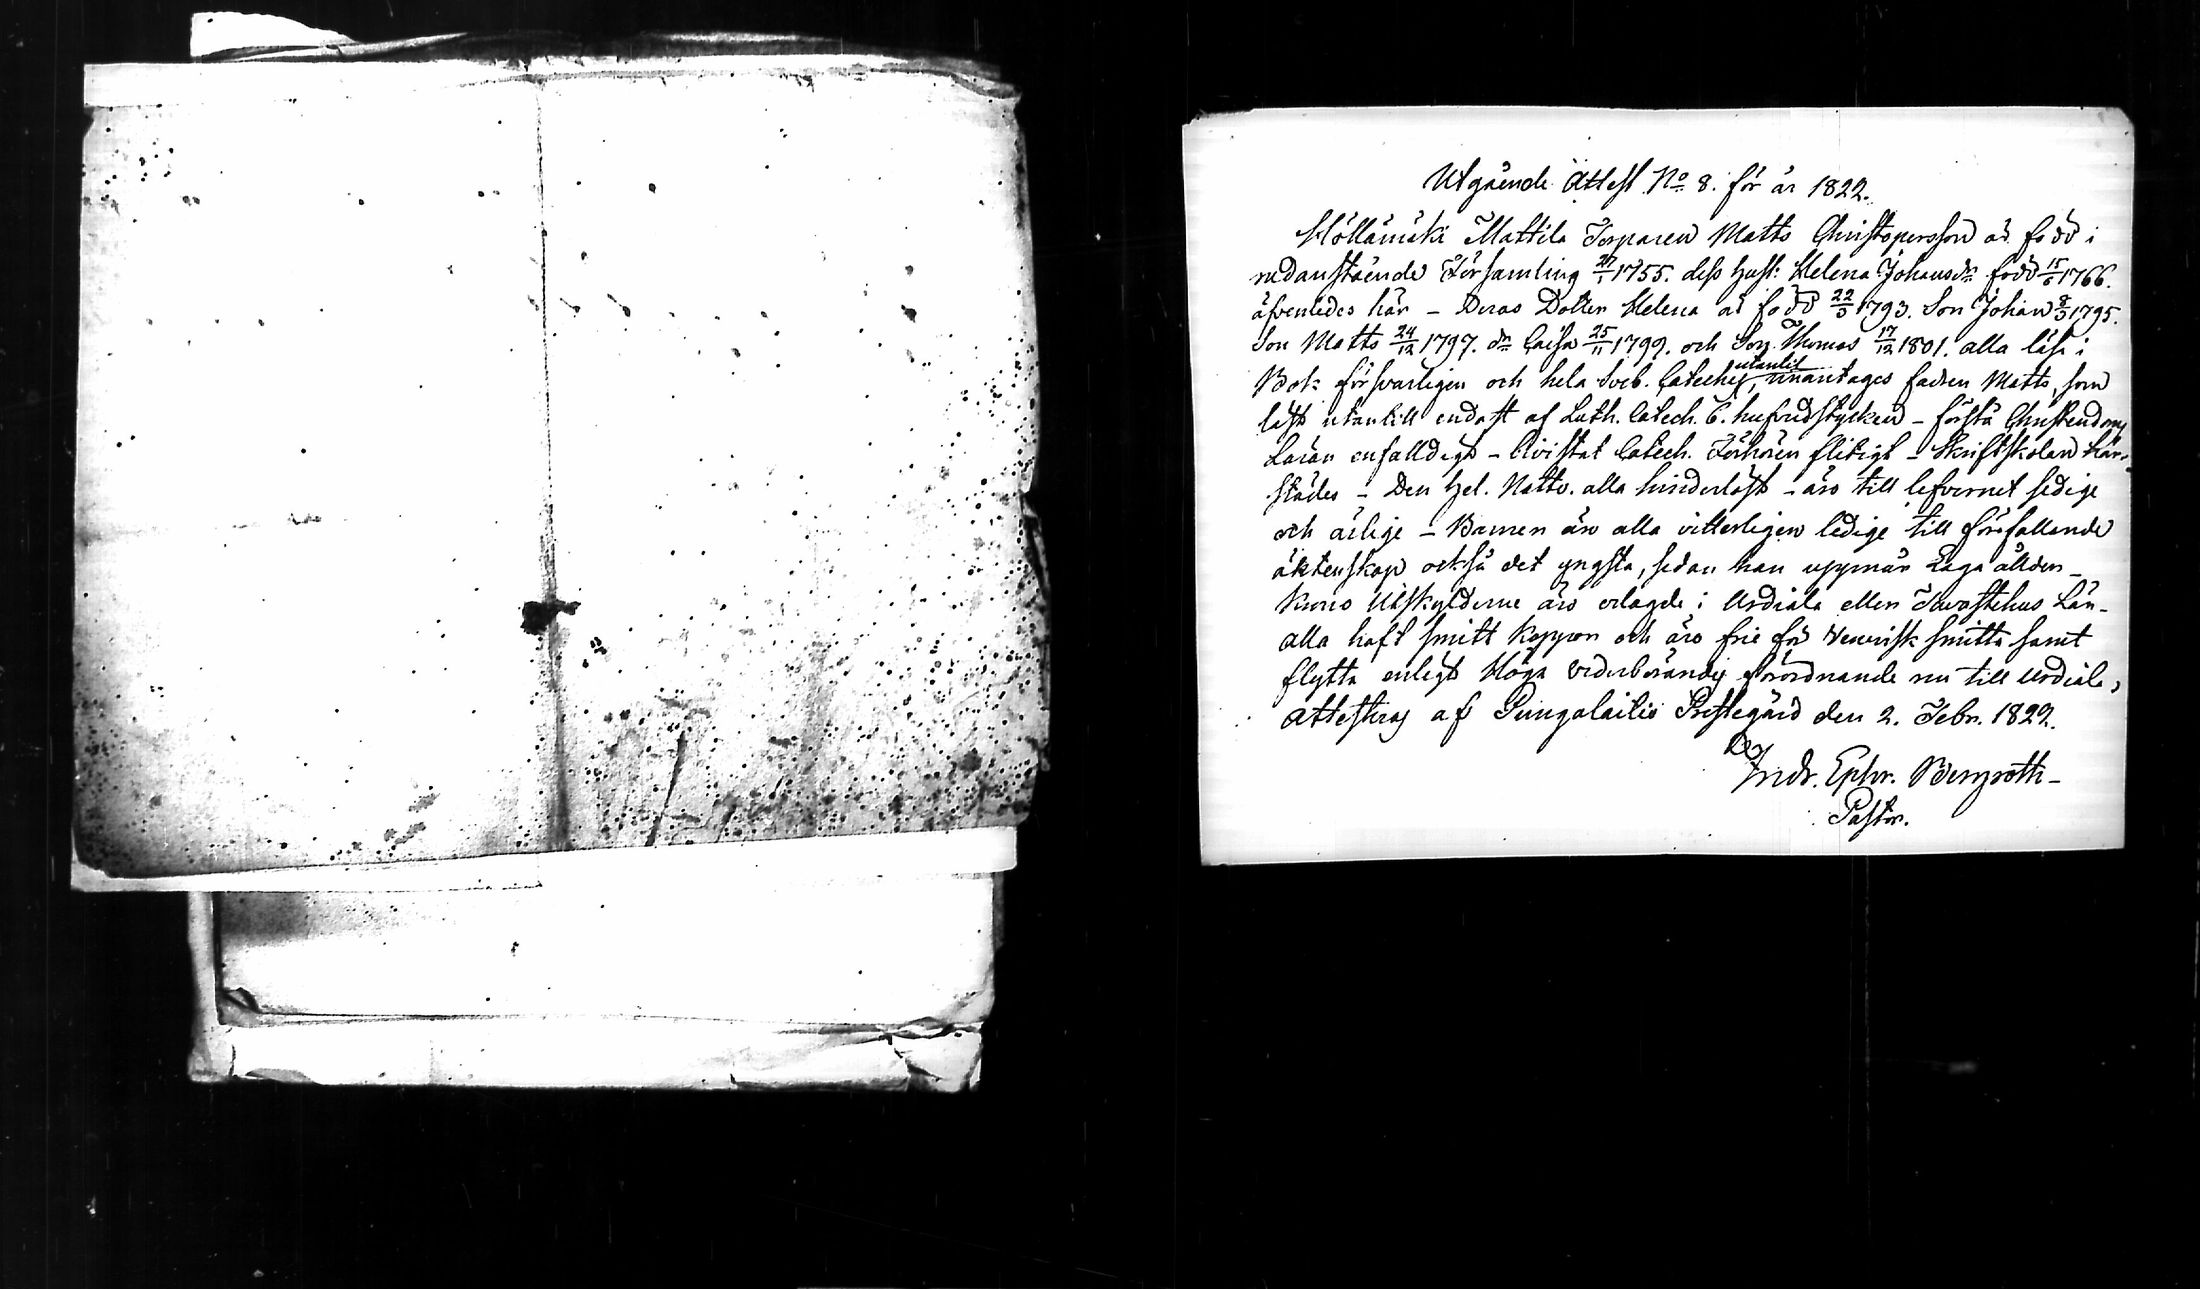 Utgående Attest No 8. för år 1822.
Höllämäki Mattila Torparen Matts Christopersson är född i
nedanstående Församling 27/1 1755. dess hust: Helena Johansdr född 15/5 1766.
äfvenledes här – Deras Dotter Helena är född 22/5 1793. Son Johan 8/3 1795.
Son Matts 24/12 1797. dr Caisa 25/11 1799. och Son Thomas 17/12 1801. alla läsa i
Bok försvarligen och hela Sveb. Cateches, utantil undantages fadren Matts, som
läst utantill endast af Luth. Catech. 6. hufvudstycken – förstå Christendoms
Läran enfalldigt – bivistat Catech. Förhören flitigt – Skriftskolan här-
städes – Den Hel. Nattv. alla hinderlöst – äro till lefvernet sedige
och ärlige – Barnen äro alla vitterligen ledige till förefallande
äktenskap också det yngsta, sedan han uppnår Laga ålldern –
Krono Utskylderne äro erlagde i Urdiala eller Tavastehus Län –
alla haft smitt koppor och äro frie från Venerisk smitta samt
flytta enligt Höga vederbörandes förordnande nu till Urdiala,
Attesteras af Pungalaitio Prestegård den 2. Febr. 1822.
Fredr. Ephr. Bergroth –
Pastor.